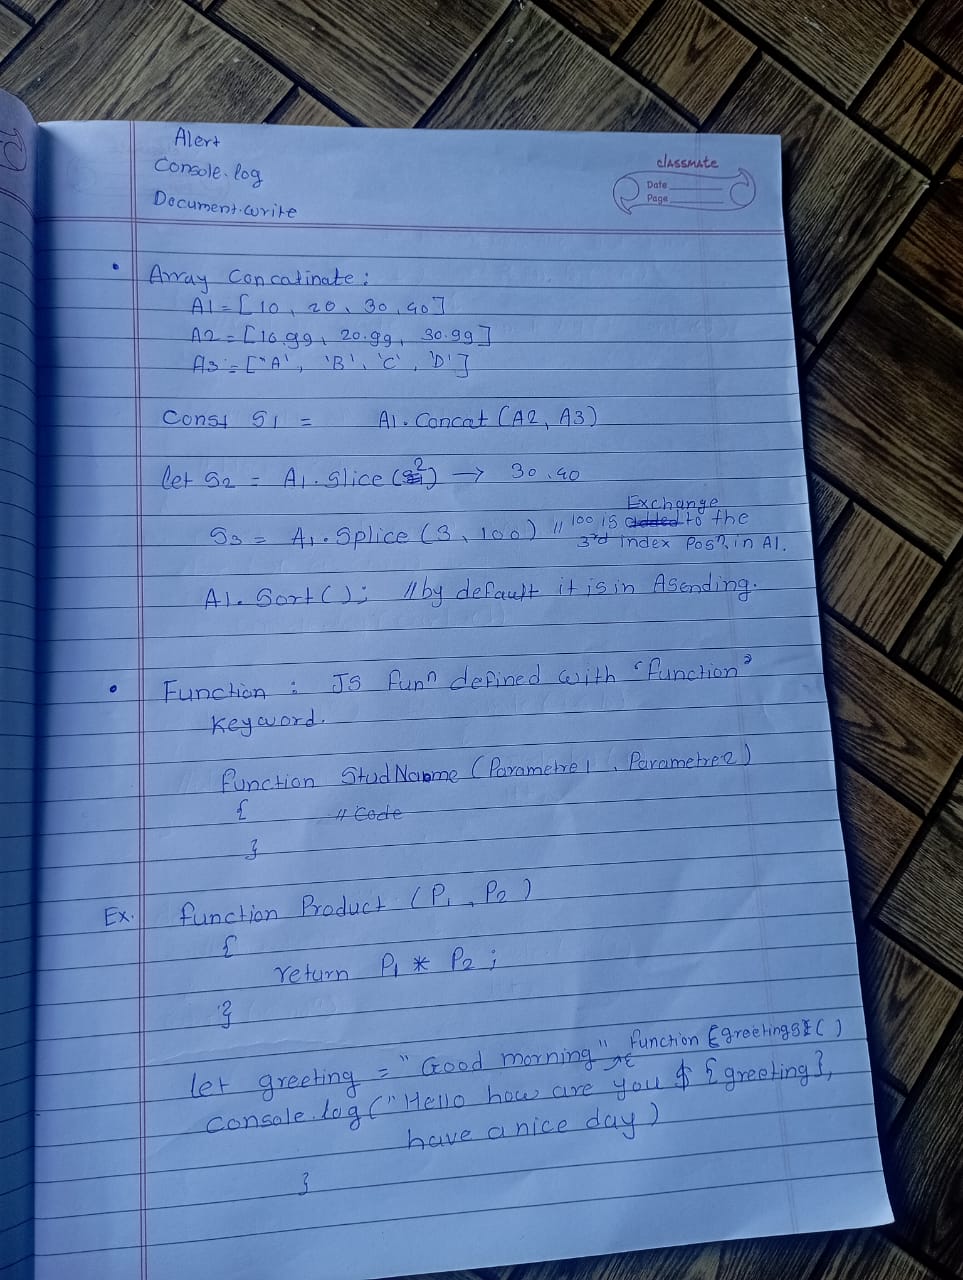 Alert
Console.log
Document.write
classmate
Date
Page
• Array Concatinate :
A1 = [10, 20, 30, 40]
A2 = [16.99, 20.99, 30.99]
A3 = ["A', 'B', 'C', 'D']
Const S1 = A1.Concat (A2, A3)
let S2 = A1.Slice (2) → 30, 40
S3 = A1.Splice (3, 100) // 100 is added Exchange to the
3rd index Posn. in A1.
A1.Sort(); // by default it is in Asending.
• Function : JS funn defined with 'function'
keyword.
function StudName (Parametre1, Parametre2)
{ // Code
}
Ex. function Product (P1, P2)
{
return P1 * P2 ;
}
let greeting = "Good morning" function greetings ( )
console.log ("Hello how are you $ {greeting},
have a nice day)
}